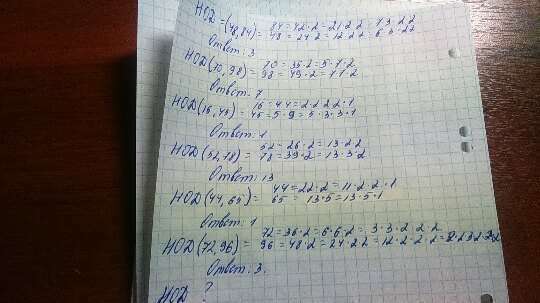 НОД =(48,84) = 84=42·2=21·2·2=7·3·2·2
48=24·2=12·2·2=6·2·2·2
Ответ: 3
НОД (70, 98) = 70=35·2=5·7·2
98=49·2=7·7·2
Ответ: 7
НОД (16, 45) = 16=4·4=2·2·2·2·1
45=5·9=5·3·3·1
Ответ: 1
НОД (52, 78) = 52=26·2=13·2·2
78=39·2=13·3·2
Ответ: 13
НОД (44, 65) = 44=22·2=11·2·2·1
65=13·5=13·5·1
Ответ: 1
НОД (72, 96) = 72=36·2=6·6·2=3·3·2·2·2
96=48·2=24·2·2=12·2·2·2
Ответ: 3.
НОД ?